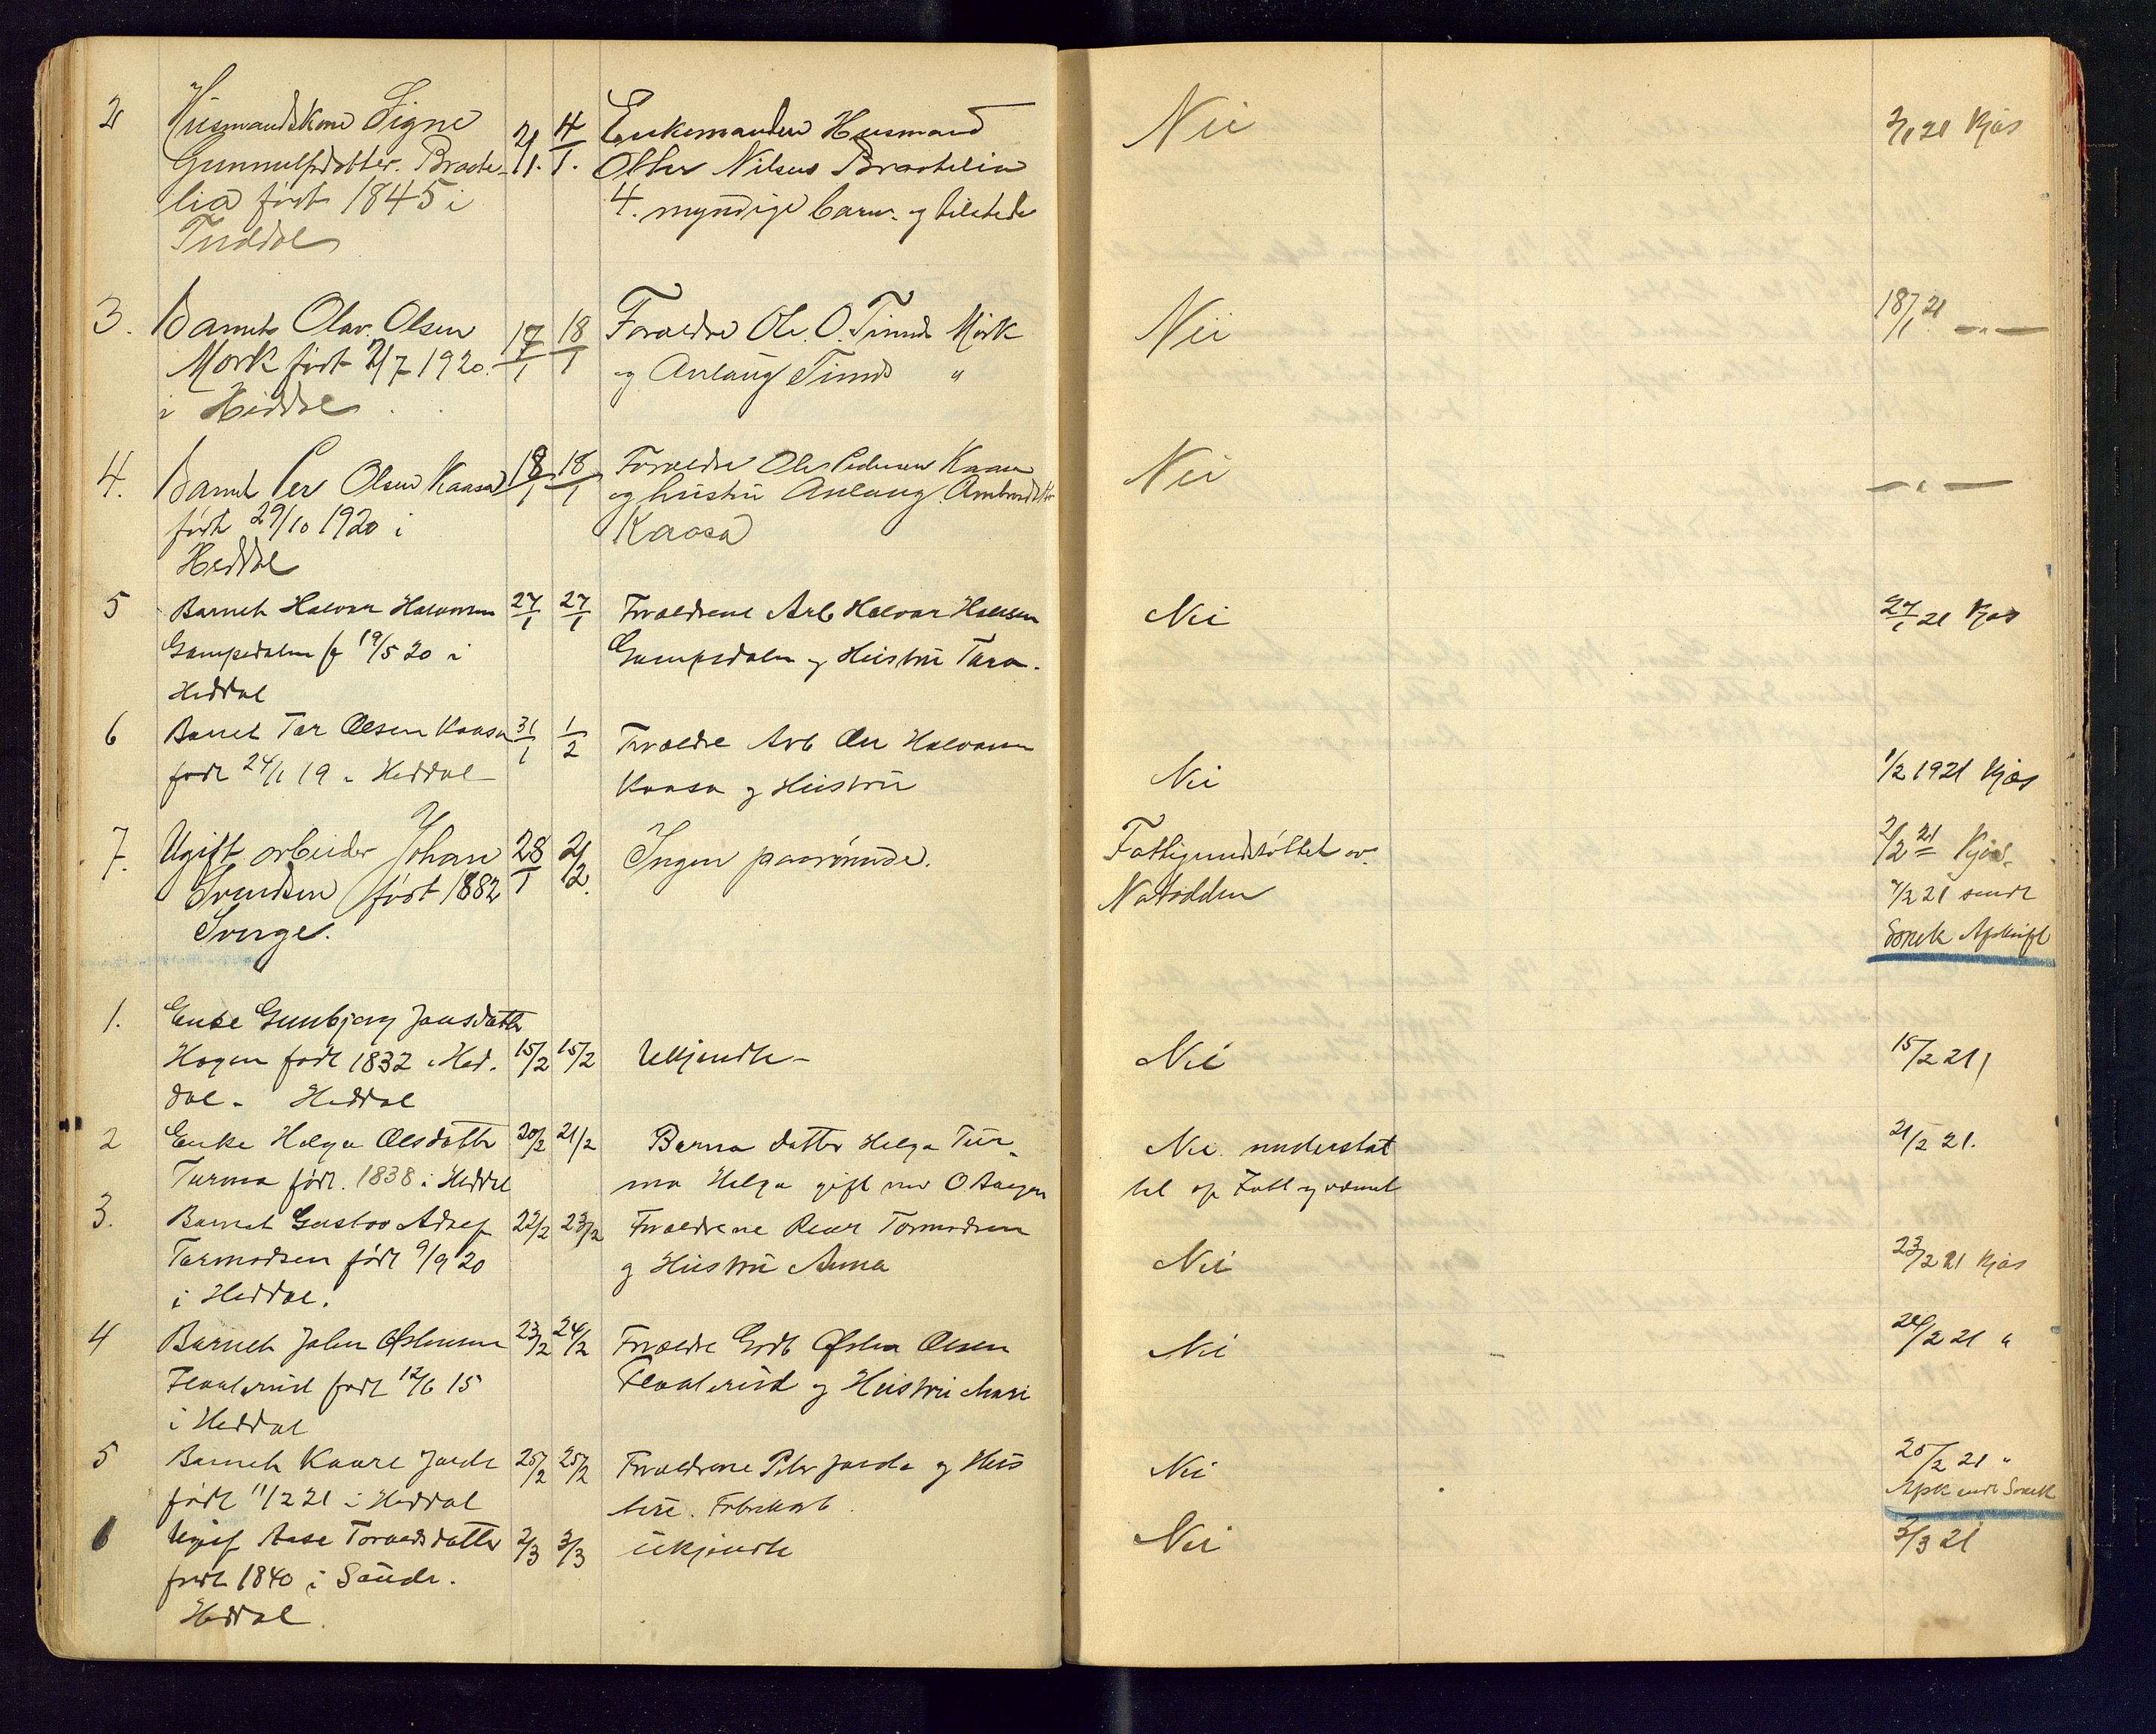 2 Husmandskone Signe 2/1. 4/1. Enkemanden Husmand Nei 3/1 21 Kjøs
Gunnulfsdatter. Braate- Olber Nilsen Braatelia
lia født 1845 i 4. myndige barn. og tilstede
Tuddal
3. Barnet Olav. Olsen 17/1 18/1 Foraeldre Ole. O. Tinnds Mörk Nei 18/1 21 —"—
Mørk født 2/7 1920. og Anlaug Tinnds "
i Hiddal
4. Barnet Per Olsen Kaasa 18/1 18/1 Foraeldre Ole Pedersen Kaasa Nei —"—
født 29/10 1920 i og hustru Anlaug
Heddal Kaasa
5 Barnet Halvor Halvorsen 27/1 27/1 Foraeldrene Arb Halvor Hansen Nei 27/1 21 Kjøs
Gampedalen f 19/5 20 i Gampedalen og Hustru Tara.
Heddal
6 Barnet Tor Olsen Kaasa 31/1 1/2 Foraeldre Arb Ole Halvorsen
født 24/1 19 i Heddal Kaasa og Hustru Nei 1/2 1921 Kjøs
7. Ugift arbeider Johan 28/1 2/2. Ingen paarørende. Fattigundstöttet av. 2/2 21 Kjøs.
Svendsen født 1882 Notodden 7/2 21 sendt
Sverge. Sorsk Afskrift
1. Enke Gunbjørg Jonsdatter
Hogen født 1832 i Hed- 15/2 15/2 Ukjendte Nei 15/2 21
dal. Heddal
2 Enke Helga Olsdatter 20/2 21/2 Barna datter Helga Tur- Nei. understøt 21/2 21.
Turma født. 1838 i Heddal ma Helga gift med O Aasen tet af Fattigvæsnet
3. Barnet Gustav Adolf 22/2 23/2 Foraeldrene Tormodsen
Tormodsen født 9/9 20 og Hustru Anna Nei 23/2 21 Kjøs
i Heddal.
4 Barnet John 23/2 24/2 Foraeldre Olsen Nei 24/2 21 "
født 12/6 15 og Hustru Mari
i Heddal
5 Barnet Kaare Jorde 25/2 25/2 Foraeldrene Peter Jorde og Hus Nei 25/2 21 "
født 11/2 21 i Heddal tru. Fabrikarb. Afsk sendt Sorsk
6 Ugift Aase Torvaldsdatter 2/3 3/3 ukjendte Nei 3/3 21
født 1840 i Saude.
Heddal.